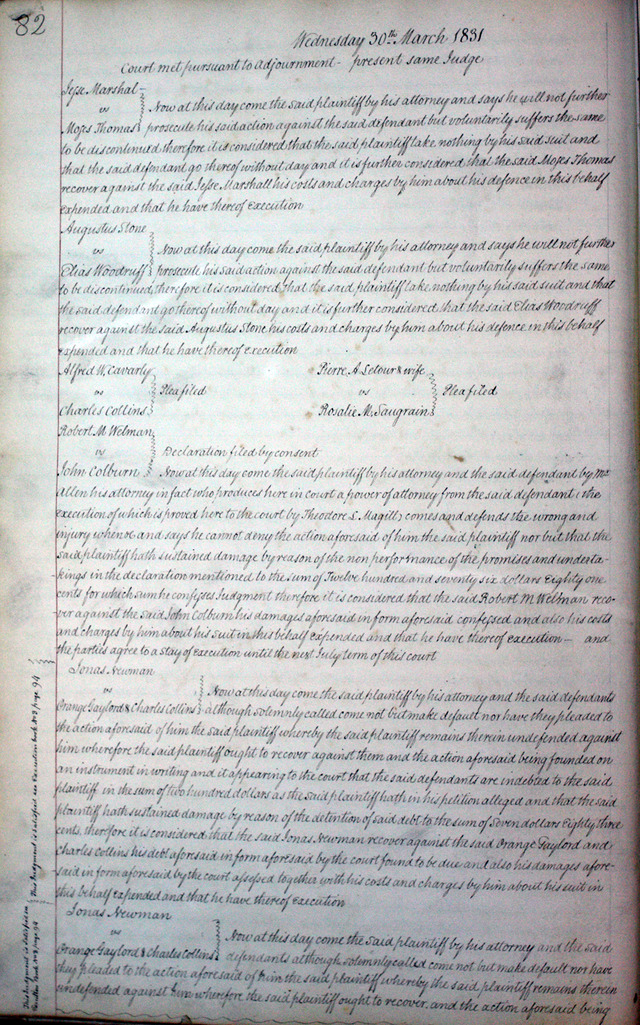 82
Wednesday 30th March 1831
Court met pursuant to adjournment - present same Judge
Jesse Marshal
vs
Moses Thomas
Now at this day come the said plaintiff by his attorney and says he will not further
prosecute his said action against the said defendant but voluntarily suffers the same
to be discontinued therefore it is considered that the said plaintiff take nothing by his said suit and
that the said defendant go thereof without day and it is further considered that the said Moses Thomas
recover against the said Jesse Marshall his costs and charges by him about his defence in this behalf
expended and that he have thereof execution
Augustus Stone
vs
Elias Woodruff
Now at this day come the said plaintiff by his attorney and says he will not further
prosecute his said action against the said defendant but voluntarily suffers the same
to be discontinued therefore it is considered that the said plaintiff take nothing by his said suit and that
the said defendant go thereof without day and it is further considered that the said Elias Woodruff
recover against the said Augustus Stone his costs and charges by him about his defence in this behalf
expended and that he have thereof execution
Alfred W. Cavarly
vs
Charles Collins
Plea filed
Pierre A. & wife
vs
Rosalie M. Saugrain
Plea filed
Robert M Welman
vs
John Colburn
Declaration filed by consent
Now at this day come the said plaintiff by his attorney and the said defendant by Mr
Allen his attorney in fact who produces here in court a power of attorney from the said defendant (the
execution of which is proved here to the court by Theodore L. Magill) comes and defends the wrong and
injury when &c and says he cannot deny the action aforesaid of him the said plaintiff nor but that the
said plaintiff hath sustained damage by reason of the non performance of the promises and underta-
kings in the declaration mentioned to the sum of Twelve hundred and seventy six dollars Eighty one
cents for which sum he confesses Judgment therefore it is considered that the said Robert M Welman reco-
ver against the said John Colburn his damages aforesaid in form aforesaid confessed and also his costs
and charges by him about his suit in this behalf expended and that he have thereof execution - and
the parties agree to a stay of execution until the next July term of this court
Jonas Newman
vs
Orange Gaylord & Charles Collins
Now at this day come the said plaintiff by his attorney and the said defendants
although solemnly called come not but make default nor have they pleaded to
the action aforesaid of him the said plaintiff whereby the said plaintiff remains therein undefended against
him wherefore the said plaintiff ought to recover against them and the action aforesaid being founded on
an instrument in writing and it appearing to the court that the said defendants are indebted to the said
plaintiff in the sum of two hundred dollars as the said plaintiff hath in his petition alleged and that the said
plaintiff hath sustained damage by reason of the detention of said debt to the sum of Seven dollars Eighty three
cents. therefore it is considered that the said Jonas Newman recover against the said Orange Gaylord and
Charles Collins his debt aforesaid in form aforesaid by the court found to be due and also his damages afore-
said in form aforesaid by the court assessed together with his costs and charges by him about his suit in
this behalf expended and that he have thereof execution
Jonas Newman
vs
Orange Gaylord & Charles Collins
Now at this day come the said plaintiff by his attorney and the said
defendants although solemnly called come not but make default nor have
they pleaded to the action aforesaid of him the said plaintiff whereby the said plaintiff remains therein
undefended against him wherefore the said plaintiff ought to recover. and the action aforesaid being
This Judgment is satisfied see Execution book No 3 page 94
This Judgment is satisfied see